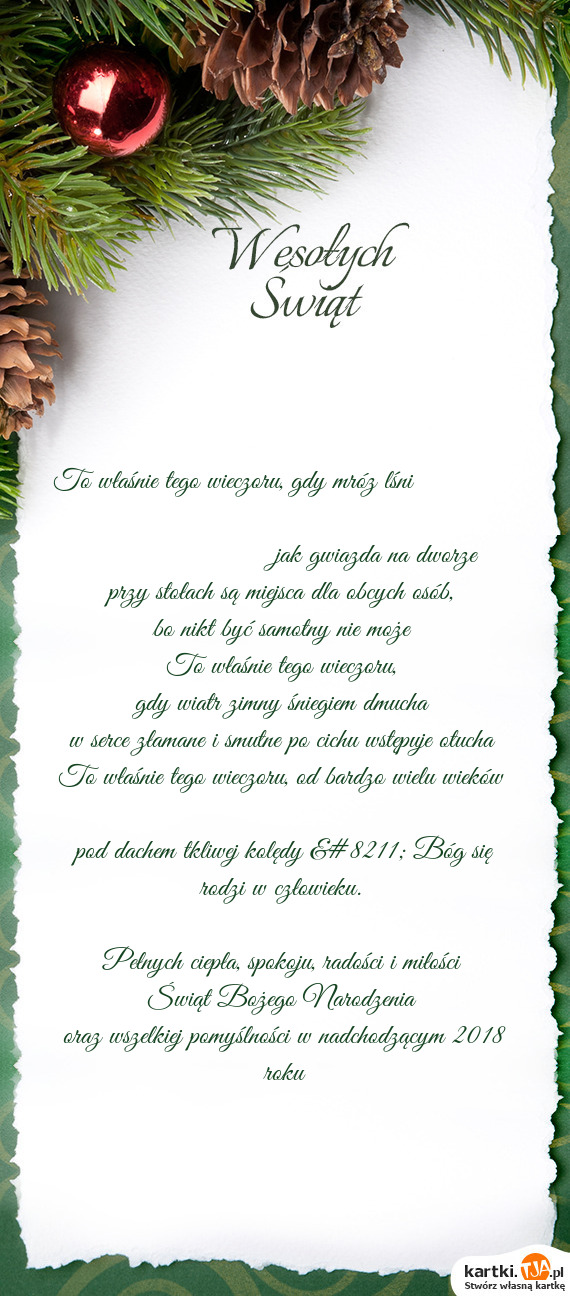 Wesołych
Świąt
To właśnie tego wieczoru, gdy mróz lśni
jak gwiazda na dworze
przy stołach są miejsca dla obcych osób,
bo nikt być samotny nie może
To właśnie tego wieczoru,
gdy wiatr zimny śniegiem dmucha
w serce złamane i smutne po cichu wstępuje otucha
To właśnie tego wieczoru, od bardzo wielu wieków
pod dachem tkliwej kolędy &#8211; Bóg się
rodzi w człowieku.
Pełnych ciepła, spokoju, radości i miłości
Świąt Bożego Narodzenia
oraz wszelkiej pomyślności w nadchodzącym 2018
roku
kartki.TJA.pl
Stwórz własną kartkę